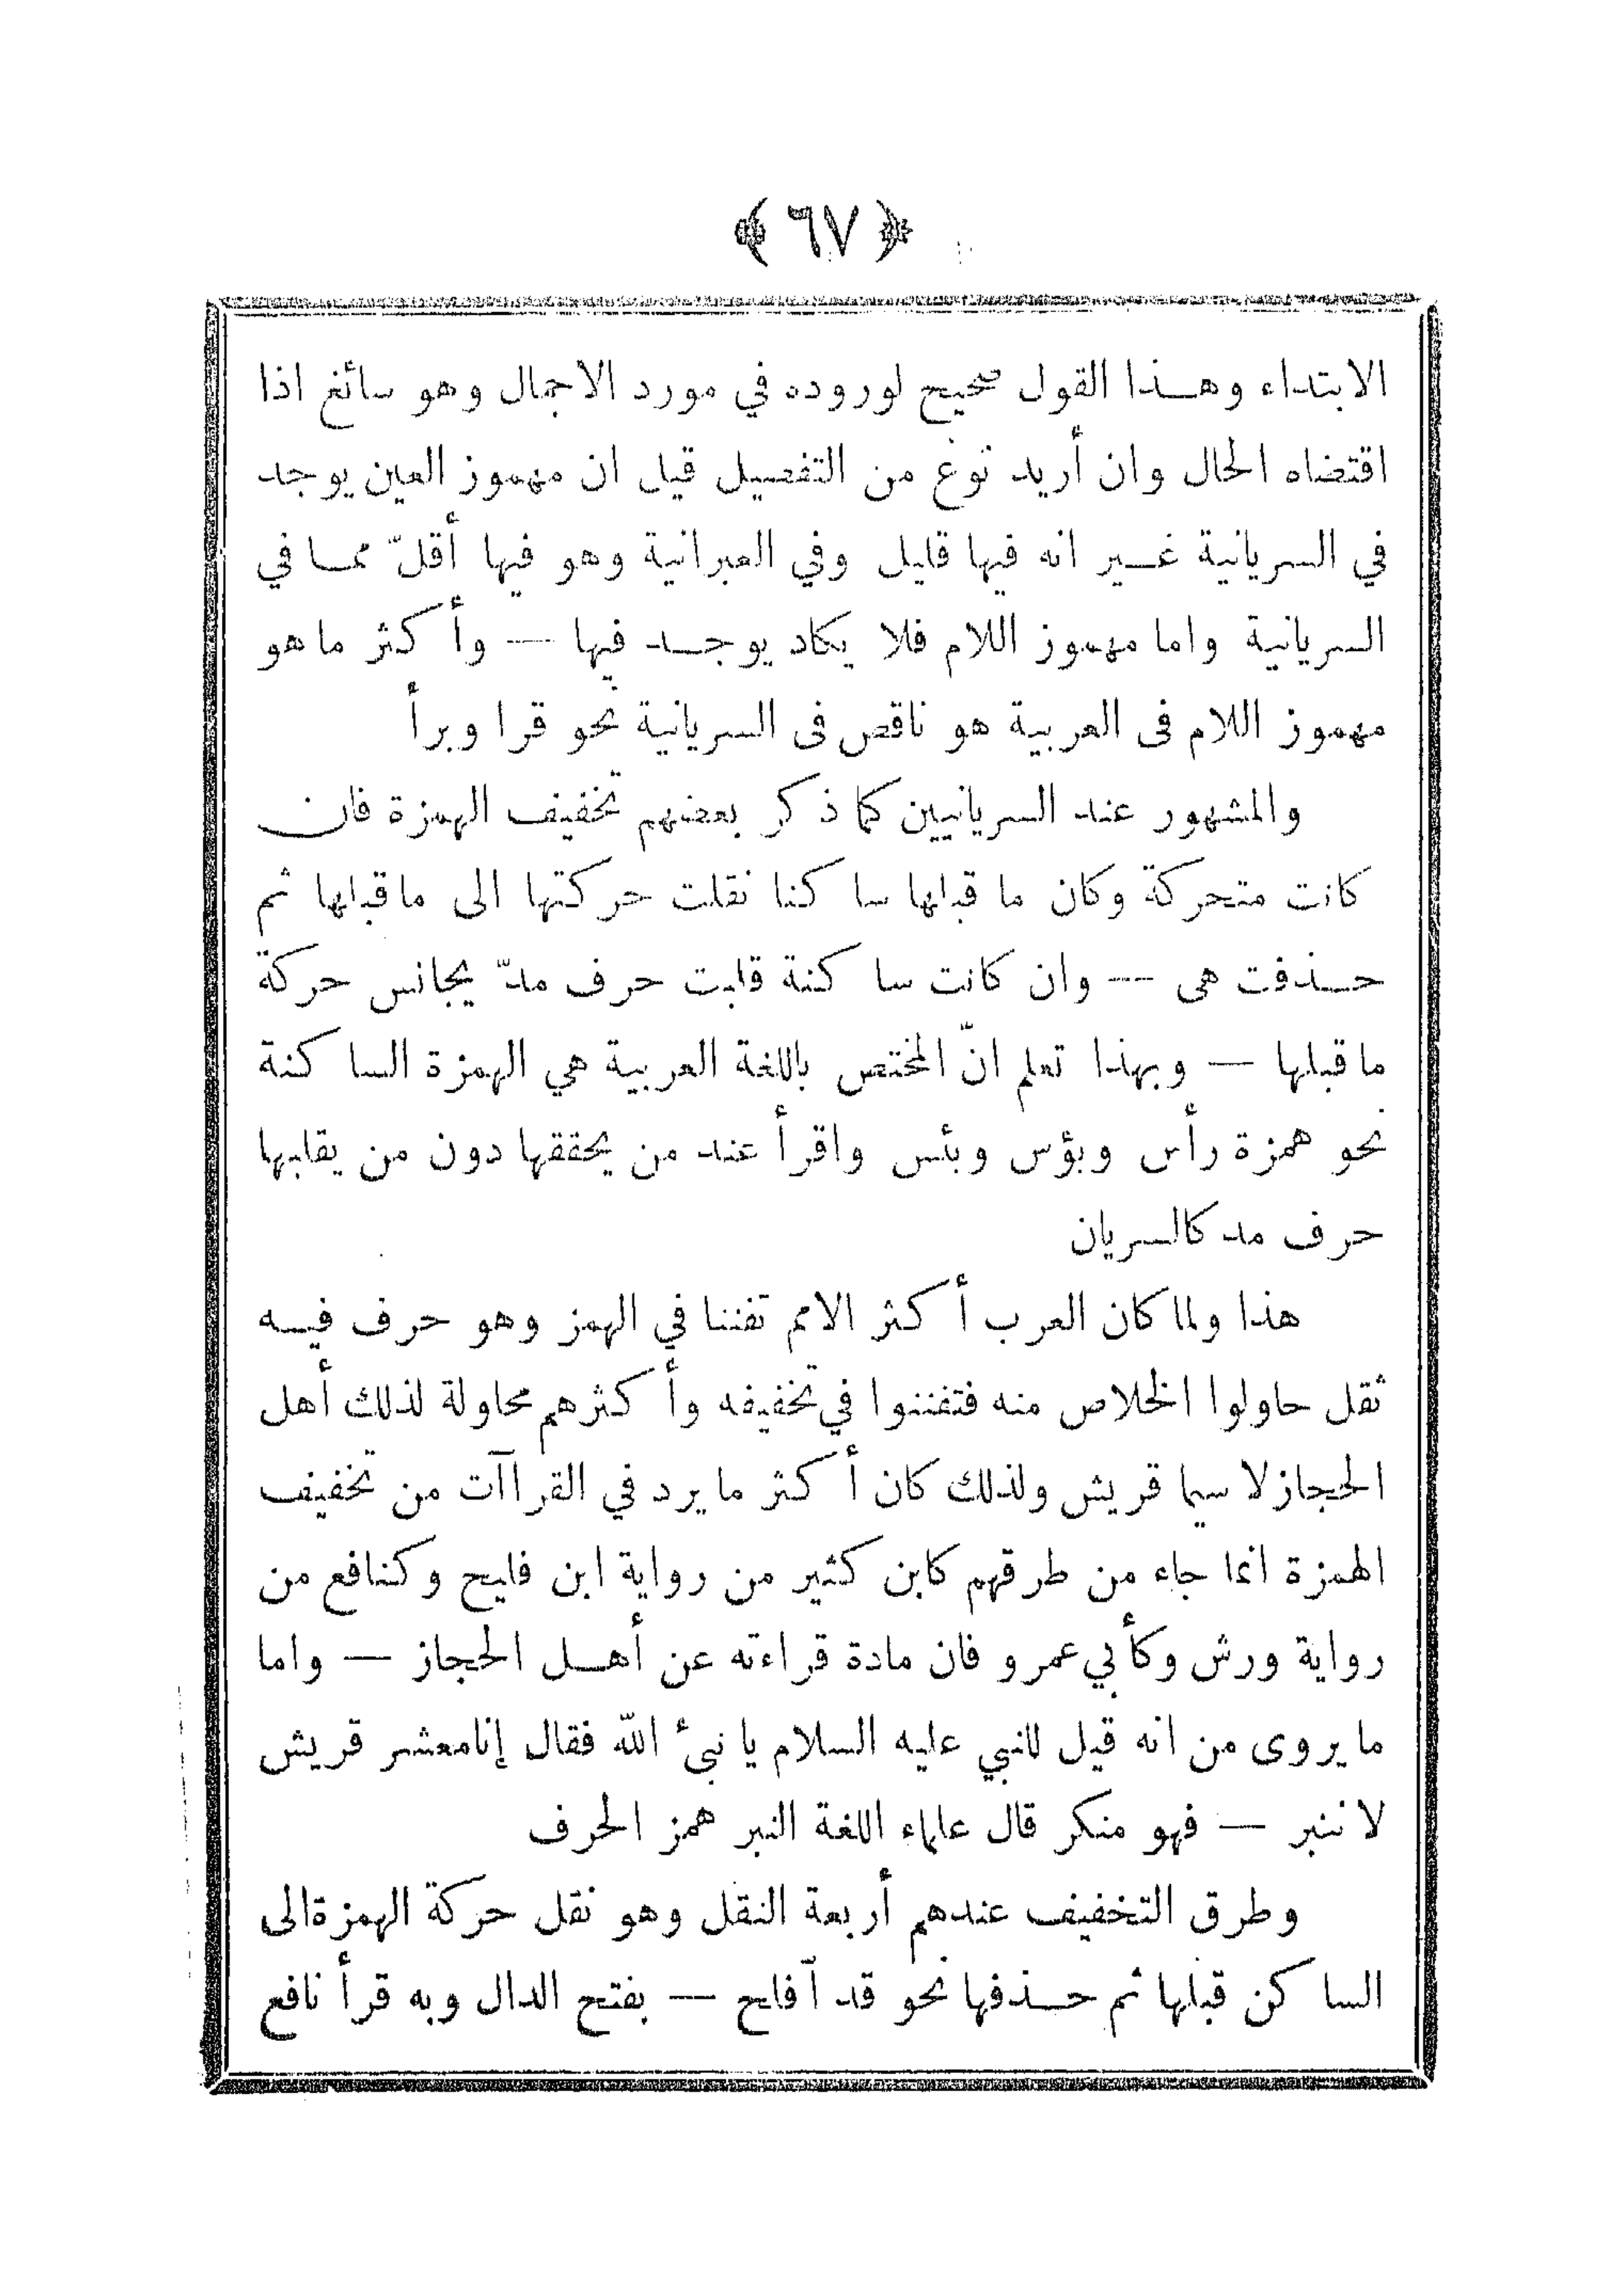 ﴿ ٦٧ ﴾
الابتداء وهذا القول صحيح لوروده في مورد الاجمال وهو سائغ اذا
اقتضاه الحال وان أريد نوع من التفصيل قيل ان مهموز العين يوجد
في السريانية غير انه فيها قليل وفي العبرانية وهو فيها أقلّ مما في
السريانية واما مهموز اللام فلا يكاد يوجد فيها — وأكثر ما هو
مهموز اللام فى العربية هو ناقص فى السريانية نحو قرا وبرأ
والمشهور عند السريانيين كما ذكر بعضهم تخفيف الهمزة فان
كانت متحركة وكان ما قبلها ساكنا نقلت حركتها الى ماقبلها ثم
حذفت هى — وان كانت ساكنة قلبت حرف مدّ يجانس حركة
ماقبلها — وبهذا تعلم انّ المختص باللغة العربية هي الهمزة الساكنة
نحو همزة رأس وبؤس وبئس واقرأ عند من يحققها دون من يقلبها
حرف مد كالسريان
هذا ولما كان العرب أكثر الامم تفننا في الهمز وهو حرف فيه
ثقل حاولوا الخلاص منه فتفننوا في تخفيفه وأكثرهم محاولة لذلك أهل
الحجاز لا سيما قريش ولذلك كان أكثر ما يرد في القراآت من تخفيف
الهمزة انما جاء من طرقهم كابن كثير من رواية ابن فليح وكنافع من
رواية ورش وكأبي عمرو فان مادة قراءته عن أهل الحجاز — واما
ما يروى من انه قيل للنبي عليه السلام يا نبىٔ الله فقال إنا معشر قريش
لا ننبر — فهو منكر قال علماء اللغة النبر همز الحرف
وطرق التخفيف عندهم أربعة النقل وهو نقل حركة الهمزة الى
الساكن قبلها ثم حذفها نحو قد آفلح — بفتح الدال وبه قرأ نافع